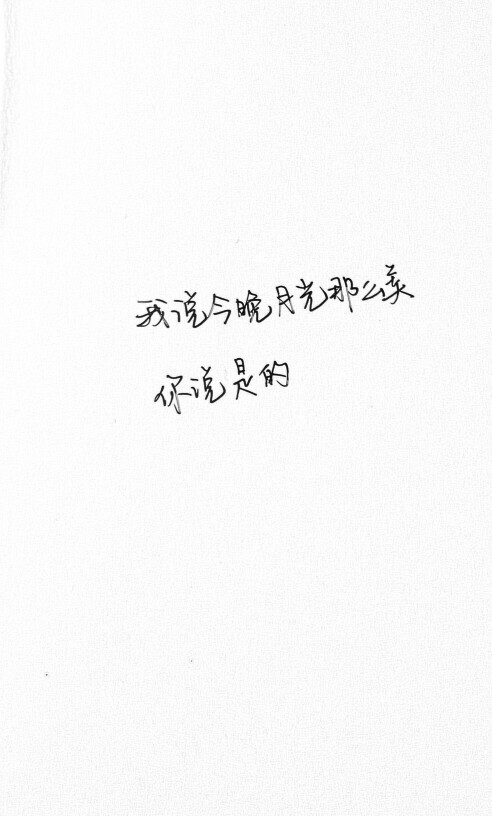 我说今晚月光那么美
你说是的